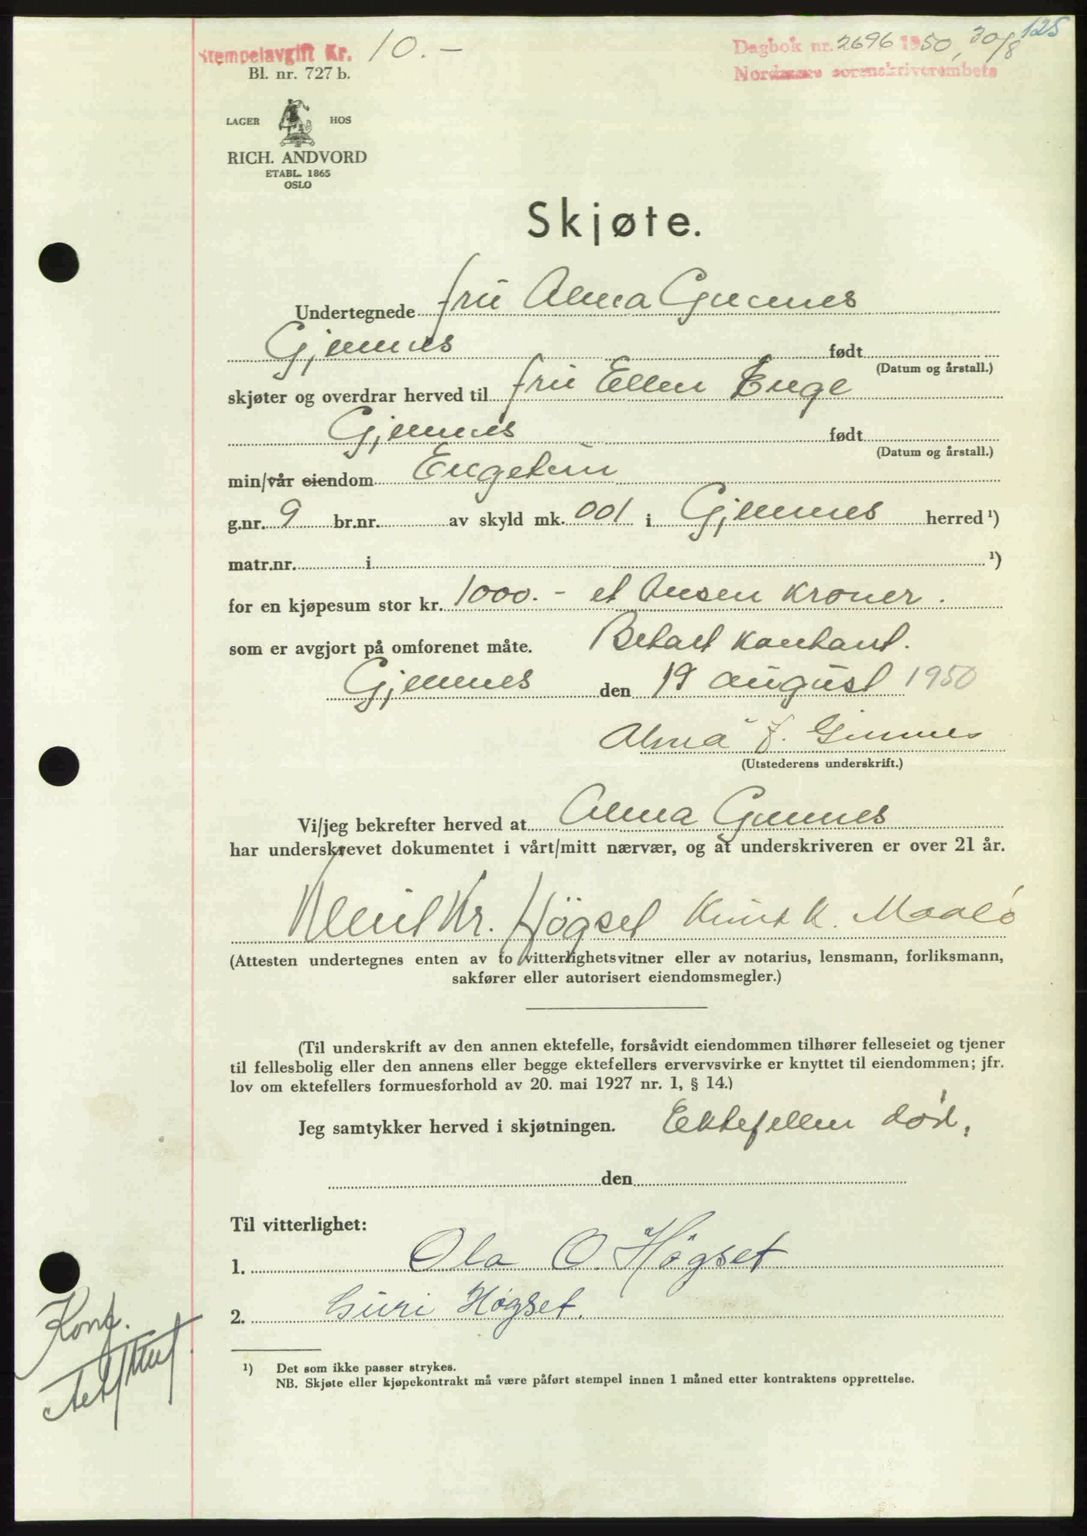 125
Stempelavgift Kr. 10.-
Dagbok nr. 2696 1950, 30/8
Nordmøre sorenskriverembete
Bl. nr. 727 b.
LAGER HOS
RICH. ANDVORD
ETABL. 1865
OSLO
Skjøte.
Undertegnede fru Alma Gimnes
Gjemnes født
(Datum og årstall.)
skjøter og overdrar herved til fru Ellen Enge
Gjemnes født
(Datum og årstall.)
min/vår eiendom Engetun
g.nr. 9 br.nr. av skyld mk. 001 i Gjemnes herred ¹)
matr.nr. i ¹)
for en kjøpesum stor kr. 1000.- et tusen kroner.
som er avgjort på omforenet måte. Betalt kontant.
Gjemnes den 19 august 1950
Alma J. Gimnes
(Utstederens underskrift.)
Vi/jeg bekrefter herved at Alma Gimnes
har underskrevet dokumentet i vårt/mitt nærvær, og at underskriveren er over 21 år.
Kr. Högset Knut K.
(Attesten undertegnes enten av to vitterlighetsvitner eller av notarius, lensmann, forliksmann,
sakfører eller autorisert eiendomsmegler.)
(Til underskrift av den annen ektefelle, forsåvidt eiendommen tilhører felleseiet og tjener
til fellesbolig eller den annens eller begge ektefellers ervervsvirke er knyttet til eiendommen; jfr.
lov om ektefellers formuesforhold av 20. mai 1927 nr. 1, § 14.)
Jeg samtykker herved i skjøtningen. Ektefellen død.
den
Til vitterlighet:
1. Ola O. Högset
2. Guri Högset.
Konf.
¹) Det som ikke passer strykes.
NB. Skjøte eller kjøpekontrakt må være påført stempel innen 1 måned etter kontraktens opprettelse.